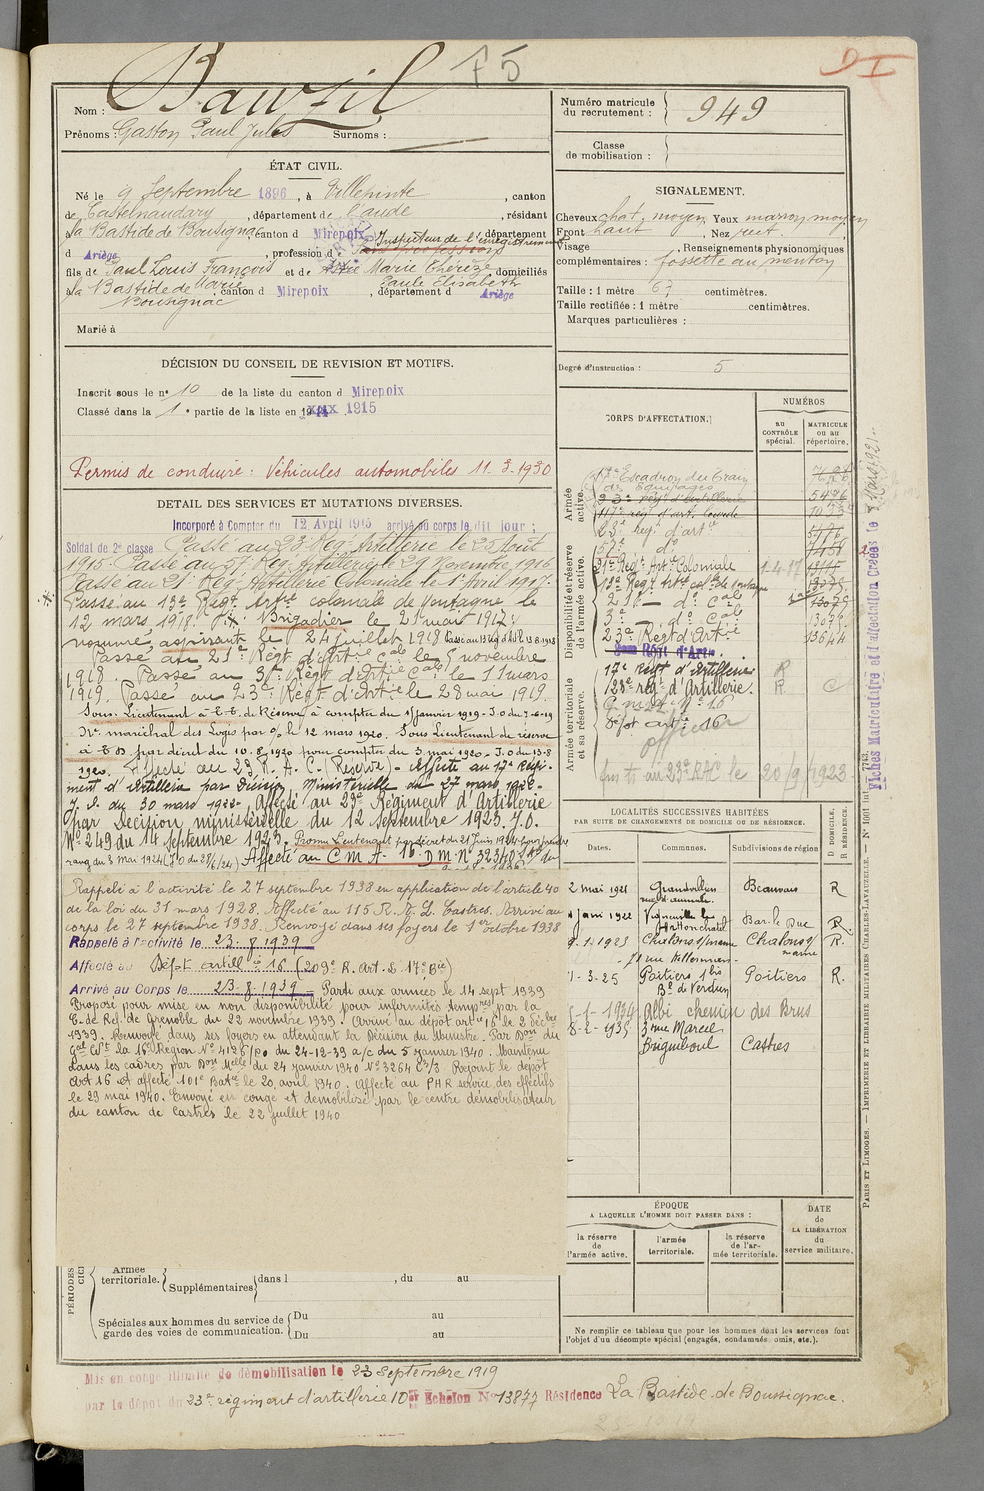 75
D I
Nom : Bauzil
Prénoms : Gaston Paul Jules Surnoms :
Numéro matricule du recrutement : 949
Classe de mobilisation :
ÉTAT CIVIL.
Né le 9 Septembre 1896, à Villepinte, canton
de Castelnaudary, département de l'aude, résidant
à la Bastide de Bousignac canton d Mirepoix, département
d Ariège, profession d Inspecteur de l'enregistrement
fils de Paul Louis François et de Marie Thérèze, domiciliés
Marie Paule Elisabeth
à la Bastide de Bousignac, canton d Mirepoix, département d Ariège
Marié à
SIGNALEMENT.
Cheveux chat. moyen Yeux marron moyen
Front haut, Nez rect.
Visage , Renseignements physionomiques
complémentaires : fossette au menton
Taille : 1 mètre 67 centimètres.
Taille rectifiée : 1 mètre centimètres.
Marques particulières :
Degré d'instruction : 5
DÉCISION DU CONSEIL DE REVISION ET MOTIFS.
Inscrit sous le nº 10 de la liste du canton d Mirepoix
Classé dans la 1e partie de la liste en 1915
Permis de conduire : Véhicules automobiles 11-3-1930
DETAIL DES SERVICES ET MUTATIONS DIVERSES.
Incorporé à Compter du 12 Avril 1915 arrivé au corps le dit jour ;
Soldat de 2e classe Passé au 23e Reg. Artillerie le 25 Août
1915. Passé au 57e Reg. Artillerie le 29 Novembre 1916
Passé au 21e Reg. Artillerie Coloniale le 1er Avril 1917.
Passé au 13e Régt. Artie coloniale de Montagne le
12 mars 1918. Brigadier le 21 mai 1917 ;
nommé aspirant le 24 juillet 1918 Passé au 13 Rég d'Art le 13-8-1918
Passé au 21e Régt d'artie cale le 5 novembre
1918. Passé au 3e Régt d'Artie Cale le 1er mars
1919. Passé au 23e Régt d'Artie le 28 mai 1919.
Sous-Lieutenant à T.T. de Réserve à compter du 1 janvier 1919 - J.O du 7-6-19
maréchal des Logis par le 12 mars 1920. Sous Lieutenant de réserve
à T.D. par décret du 10-8-1920 pour compter du 3 mai 1920 - J.O du 13-8
1920. Affecté au 23 R.A.C. (Réserve) - Affecté au 17e Régi-
ment d'Artillerie par Décision Ministérielle du 27 mars 1922-
J.O. du 30 mars 1922- Affecté au 23e Régiment d'Artillerie
par Décision ministérielle du 12 Septembre 1923. J.O.
Nº 249 du 14 Septembre 1923. Promu Lieutenant par décret du 21 Juin 1924 pour prendre
rang du 3 Mai 1924 (J.O du 28/6/24) Affecté au C M A - 16 D M Nº 32340
Rappelé à l'activité le 27 septembre 1938 en application de l'article 40
de la loi du 31 mars 1928. Affecté au 115 R.A.L. Castres. Arrivé au
corps le 27 septembre 1938. Renvoyé dans ses foyers le 1er octobre 1938
Rappelé à l'activité le 23.8.1939
Affecté au Dépôt artillie 16 (209e R. Art. L 17e Bie)
Arrivé au Corps le 23.8.1939 Parti aux armées le 14 sept 1939
Proposé pour mise en non disponibilité pour infirmités tempres par la
C. de Ref. de Grenoble du 22 novembre 1939. Arrivé au dépôt art 16 le 2 décbre
1939. Renvoyé dans ses foyers en attendant la Décision du Ministre. Par Don du
Gal Ct la 16e Région Nº 4126/PO du 24-12-39 a/c du 5 janvier 1940. Maintenu
dans les cadres par Don Melle du 24 janvier 1940 Nº 3264 C/3 Rejoint le dépôt
Art 16 et affecté 101e Batie le 20 avril 1940. Affecté au P H R service des effectifs
le 29 mai 1940. Envoyé en congé et démobilisé par le centre démobilisateur
du canton de Castres le 22 juillet 1940
CORPS D'AFFECTATION.
NUMÉROS
AU CONTRÔLE spécial.
MATRICULE OU AU répertoire.
Armée active.
Disponibilité et réserve de l'armée active.
Armée territoriale et sa réserve.
17e Escadron du Train
des Equipages
23e reg. d'artillerie
117e reg. d'art. lourde
23e reg. d'artie
57e do
21e Régt Artie Coloniale 1-4-17
13e Régt Artie cole de montagne
21e do cale
3e do cale 13078
23e Régt d'Artie 13644
17e Régt d'Artillerie R
23e reg. d'Artillerie. R
C m A Nº 16
Dépôt artie 16
officier
au 23e RAC le 20/9/1923
Fiches Matriculaire et d'affectation Créées le
LOCALITÉS SUCCESSIVES HABITÉES
PAR SUITE DE CHANGEMENTS DE DOMICILE OU DE RÉSIDENCE.
Dates. Communes. Subdivisions de région D DOMICILE. R RÉSIDENCE.
2 mai 1921 Grandvilliers Beauvais R
janv 1922 Vigneulles les Hattonchatel Bar-le Duc R.
9.1.1923 Chalons s/marne Chalons s/marne R.
1-3-25 Poitiers 1 bis Poitiers R.
Bd de Verdun
5-1-1934 Albi chemin des Brus
8-2-1935 3 rue Marcel
Briguiboul Castres
ÉPOQUE
A LAQUELLE L'HOMME DOIT PASSER DANS :
la réserve de l'armée active.
l'armée territoriale.
la réserve de l'armée territoriale.
DATE de LA LIBÉRATION du service militaire.
Ne remplir ce tableau que pour les hommes dont les services font
l'objet d'un décompte spécial (engagés, condamnés, omis, etc.).
PARIS ET LIMOGES. — IMPRIMERIE ET LIBRAIRIE MILITAIRES CHARLES-LAVAUZELLE.
PÉRIODES
Armée territoriale. Supplémentaires dans l , du au
Spéciales aux hommes du service de garde des voies de communication. Du au
Du au
Mis en congé illimité de démobilisation le 23 Septembre 1919
par le dépôt du 23e régiment d'artillerie 10e Echelon Nº 13877 Résidence La Bastide-de-Boussignac.